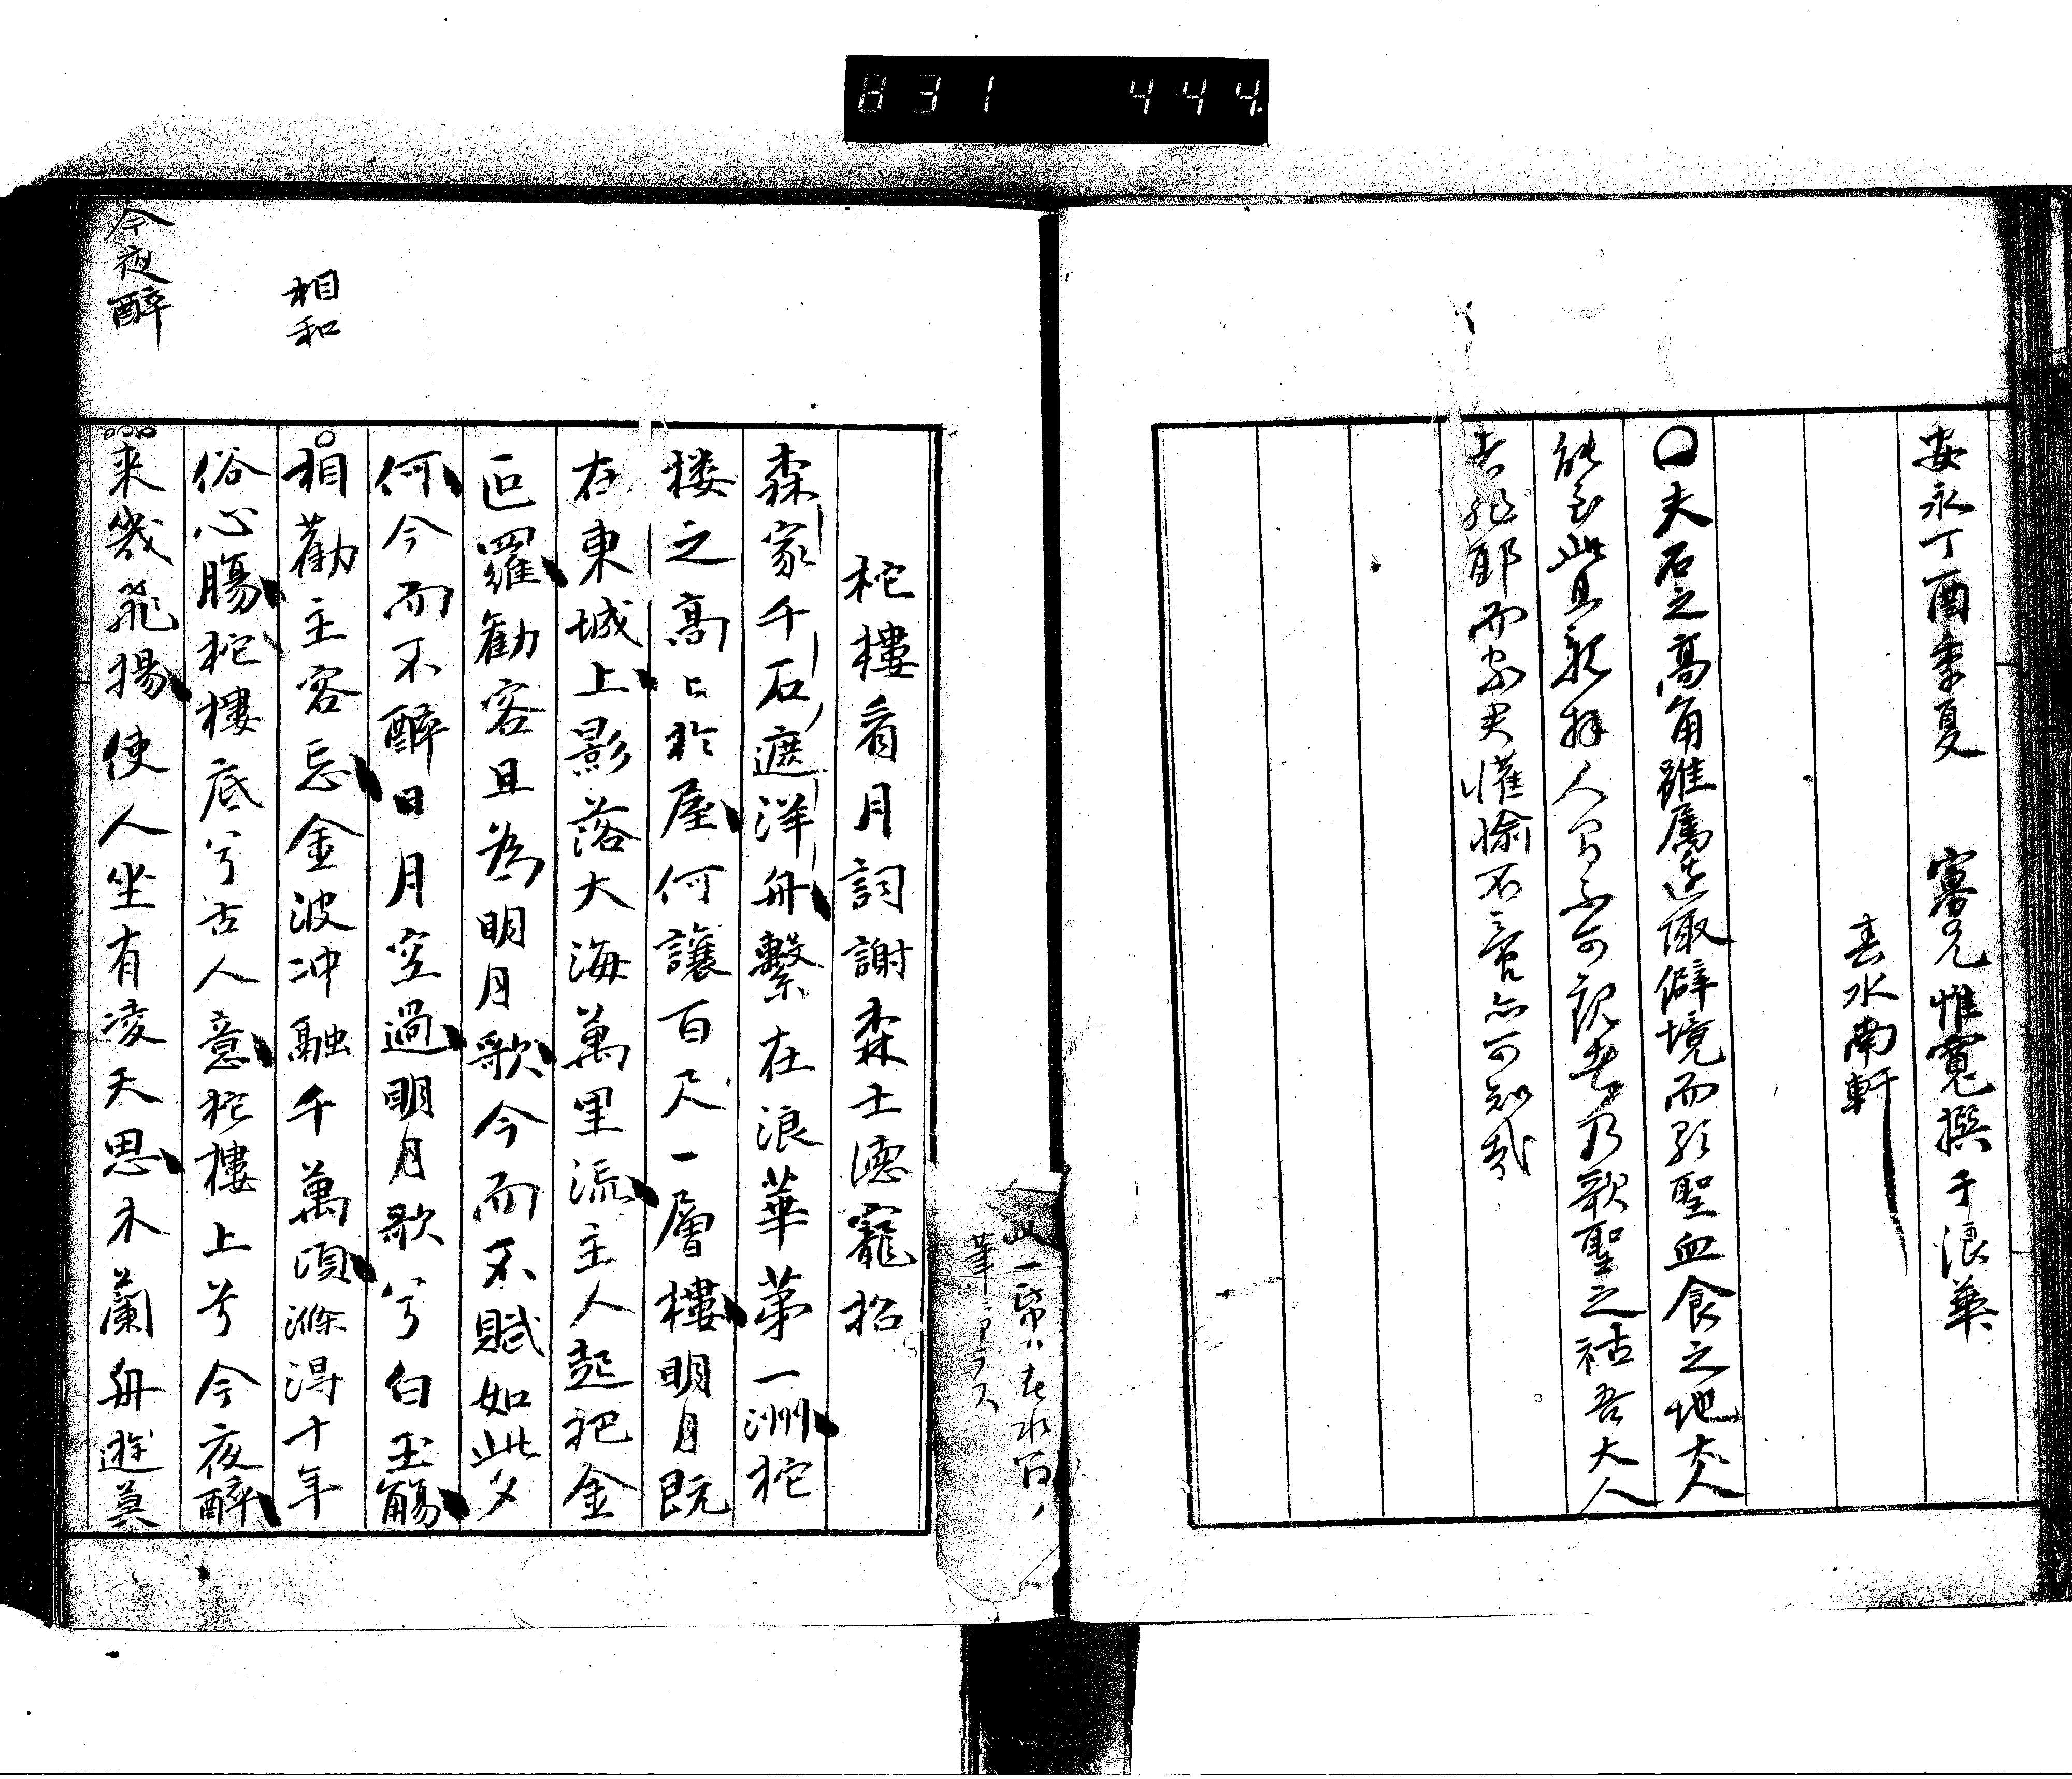 831 444
安永丁酉季夏 賽兄惟寛撰于浪華
春水南軒
夫石之高角雖属邊陬僻境而歌聖血食之地大人
能至此且親拜人乃歌聖之祜吾大人
耶而家史懽愉不可知哉
此一帋ハ春水
筆
柁樓看月詞謝森士德寵招
森家千石遮洋舟繫在浪華第一洲柁
楼之高高於屋何讓百尺一層樓明月既
在東城上影落大海萬里流主人起把金
叵羅勸客且為明月歌今而不賦如此夕
何今而不醉日月空過明月歌兮白玉觴
相和
相勸主客忘金波冲融千萬頃滌得十年
俗心腸柁樓底兮古人意柁樓上兮今夜醉
今夜醉
来幾飛揚使人坐有凌天思木蘭舟遊莫